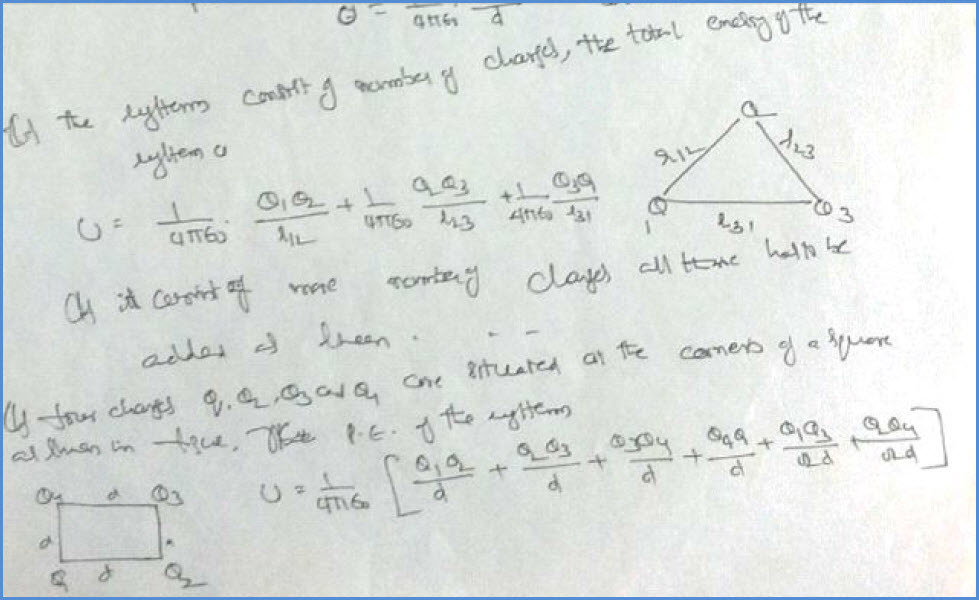 Q = 1/4πε₀ . /d
If the systems consist of number of charges, the total energy of the
system U
U = 1/4πε₀ . Q₁Q₂/r₁₂ + 1/4πε₀ Q₂Q₃/r₂₃ + 1/4πε₀ Q₃Q₁/r₃₁
Q₂
r₁₂ r₂₃
Q₁ r₃₁ Q₃
If it consist of more number of charges all these had to be
added as
If four charges Q₁, Q₂, Q₃ and Q₄ are situated at the corners of a square
as in figure. The P.E. of the systems
U = 1/4πε₀ [Q₁Q₂/d + Q₂Q₃/d + Q₃Q₄/d + Q₄Q₁/d + Q₁Q₃/√2d + Q₂Q₄/√2d]
Q₄ d Q₃
d
Q₁ d Q₂